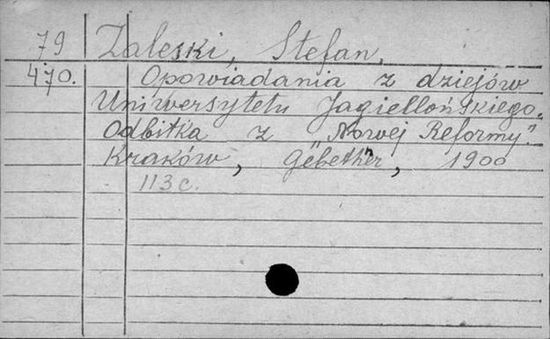 79 Zaleski, Stefan,
470. Opowiadania z dziejów
Uniwersytetu Jagiellońskiego.
Odbitka z "Nowej Reformy".
Kraków, Gebether, 1900
113 c.